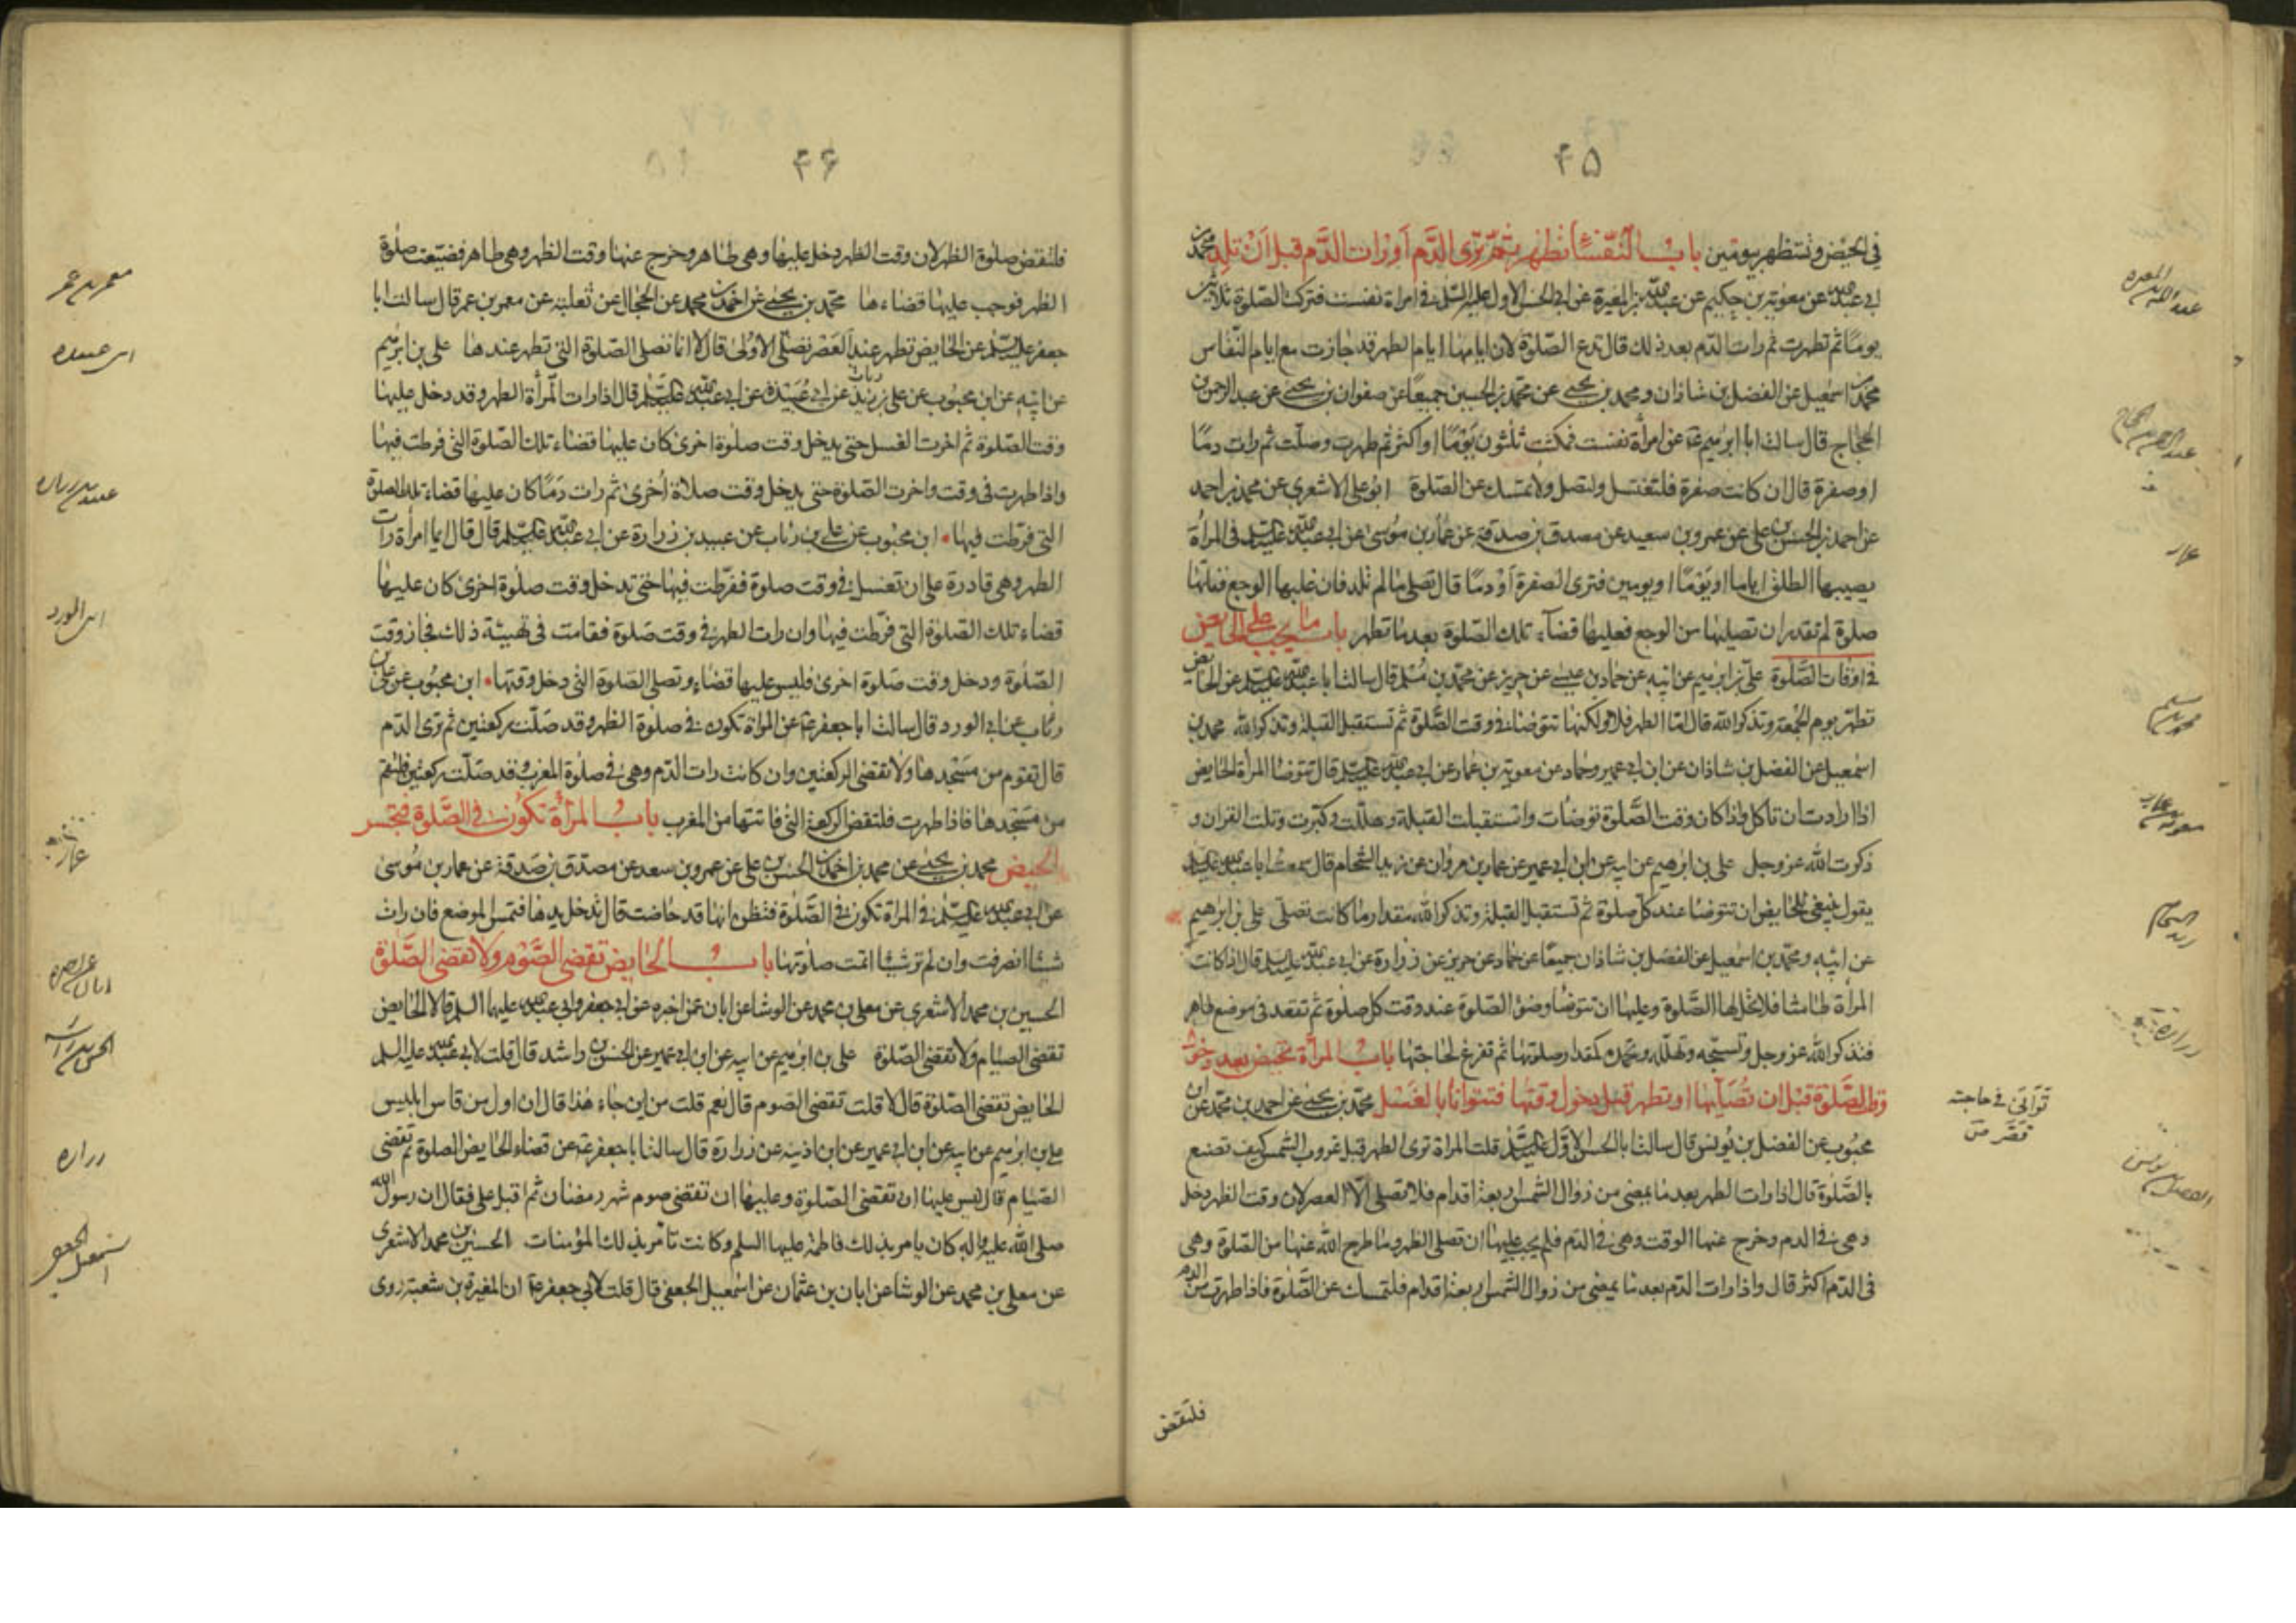 ۴۵
فى الحيض وتستظهر بيومين باب النفساء تطهر ثم ترى الدم او رات الدم قبل ان تلد محمد بن
ابى عبد الله عن معوية بن حكيم عن عبد الله بن المغيرة عن ابى الحسن الاول عليه السلم فى امراة نفست فتركت الصلوة ثلاثين
يومًا ثم تطهرت ثم رات الدم بعد ذلك قال تدع الصلوة لان ايامها ايام الطهر قد جازت مع ايام النفاس
محمد بن اسمعيل عن الفضل بن شاذان ومحمد بن يحيى عن محمد بن الحسين جميعًا عن صفوان بن يحيى عن عبد الرحمن بن
الحجاج قال سالت ابا ابرهيم ع عن امرأة نفست فمكثت ثلثون يومًا او اكثر ثم طهرت وصلت ثم رات دمًا
او صفرة قال ان كانت صفرة فلتغتسل ولتصل ولا تمسك عن الصلوة ابو على الاشعرى عن محمد بن احمد
عن احمد بن الحسن بن على عن عمرو بن سعيد عن مصدق بن صدقة عن عمار بن موسى عن ابى عبد الله عليه السلم فى المرأة
يصيبها الطلق اياما او يومًا او يومين فترى الصفرة او دمًا قال تصلى ما لم تلد فان غلبها الوجع ففاتها
صلوة لم تقدر ان تصليها من الوجع فعليها قضاء تلك الصلوة بعد ما تطهر باب ما يجب على الحايض
فى اوقات الصلوة على بن ابرهيم عن ابيه عن حماد بن عيسى عن حريز عن محمد بن مسلم قال سالت ابا عبد الله عليه السلم عن الحايض
تطهر يوم الجمعة وتذكر الله قال اما الطهر فلا ولكنها تتوضا فى وقت الصلوة ثم تستقبل القبلة وتذكر الله محمد بن
اسمعيل عن الفضل بن شاذان عن ابن ابى عمير وحماد عن معوية بن عمار عن ابى عبد الله عليه السلم قال تتوضا المرأة الحايض
اذا ارادت ان تاكل واذا كان وقت الصلوة توضات واستقبلت القبلة وهللت وكبرت وتلت القران و
ذكرت الله عز وجل على بن ابرهيم عن ابيه عن ابن ابى عمير عن عمار بن مروان عن زيد الشحام قال سمعت ابا عبد الله عليه السلم
يقول ينبغى للحايض ان تتوضا عند كل صلوة ثم تستقبل القبلة وتذكر الله مقدار ما كانت تصلى على بن ابرهيم
عن ابيه ومحمد بن اسمعيل عن الفضل بن شاذان جميعًا عن حماد عن حريز عن زرارة عن ابى عبد الله عليه السلم قال اذا كانت
المرأة طامثا فلا تحل لها الصلوة وعليها ان تتوضا وضوء الصلوة عند وقت كل صلوة ثم تقعد فى موضع طاهر
فتذكر الله عز وجل وتسبحه وتهلله وتحمده كمقدار صلوتها ثم تفرغ لحاجتها باب المرأة تحيض بعد دخول
وقت الصلوة قبل ان تصليها او تطهر قبل دخول وقتها فتتوانا بالغسل محمد بن يحيى عن احمد بن محمد عن ابن
محبوب عن الفضل بن يونس قال سالت ابا الحسن الاول عليه السلم قلت المراة ترى الطهر قبل غروب الشمس كيف تصنع
بالصلوة قال اذا رات الطهر بعد ما يمضى من زوال الشمس اربعة اقدام فلا تصلى الا العصر لان وقت الظهر دخل
وهى فى الدم وخرج عنها الوقت وهى فى الدم فلم يجب عليها ان تصلى الظهر وما طرح الله عنها من الصلوة وهى
فى الدم اكثر قال واذا رات الدم بعد ما يمضى من زوال الشمس اربعة اقدام فلتمسك عن الصلوة فاذا طهرت من الدم
فلتقض
عبد الله بن المغيرة
عبد الرحمن بن الحجاج
عمار
محمد بن مسلم
معوية بن عمار
زيد الشحام
زرارة
توانى فى حاجته
قصر من
الفضل بن يونس
۴۶
فلتقض صلوة الظهر لان وقت الظهر دخل عليها وهى طاهر وخرج عنها وقت الظهر وهى طاهر فضيعت صلوة
الظهر فوجب عليها قضاءها محمد بن يحيى عن احمد بن محمد عن الحجال عن ثعلبة عن معمر بن عمر قال سالت ابا
جعفر عليه السلم عن الحايض تطهر عند العصر تصلى الاولى قال لا انما تصلى الصلوة التى تطهر عندها على بن ابرهيم
عن ابيه عن ابن محبوب عن على بن زيد رئاب عن ابى عبيدة عن ابى عبد الله عليه السلم قال اذا رات المرأة الطهر وقد دخل عليها
وقت الصلوة ثم اخرت الغسل حتى يدخل وقت صلوة اخرى كان عليها قضاء تلك الصلوة التى فرطت فيها
واذا طهرت فى وقت واخرت الصلوة حتى يدخل وقت صلاة اخرى ثم رات دمًا كان عليها قضاء تلك الصلوة
التى فرطت فيها ابن محبوب عن على بن رئاب عن عبيد بن زرارة عن ابى عبد الله عليه السلم قال قال ايما امرأة رات
الطهر وهى قادرة على ان تغتسل فى وقت صلوة ففرطت فيها حتى تدخل وقت صلوة اخرى كان عليها
قضاء تلك الصلوة التى فرطت فيها وان رات الطهر فى وقت صلوة فقامت فى تهيئة ذلك فجاز وقت
الصلوة ودخل وقت صلوة اخرى فليس عليها قضاء وتصلى الصلوة التى دخل وقتها ابن محبوب عن على بن
رئاب عن ابى الورد قال سالت ابا جعفر ع عن المراة تكون فى صلوة الظهر وقد صلت ركعتين ثم ترى الدم
قال تقوم من مسجدها ولا تقضى الركعتين وان كانت رات الدم وهى فى صلوة المغرب وقد صلت ركعتين فلتقم
من مسجدها فاذا طهرت فلتقض الركعة التى فاتتها من المغرب باب المرأة تكون فى الصلوة فتحس
الحيض محمد بن يحيى عن محمد بن احمد بن الحسن بن على عن عمرو بن سعد عن مصدق بن صدقة عن عمار بن موسى
عن ابى عبد الله عليه السلم فى المراة تكون فى الصلوة فتظن انها قد حاضت قال تدخل يدها فتمس الموضع فان رات
شيئا انصرفت وان لم تر شيئا اتمت صلوتها باب الحايض تقضى الصوم ولا تقضى الصلوة
الحسين بن محمد الاشعرى عن معلى بن محمد عن الوشا عن ابان عمن اخبره عن ابى جعفر وابى عبد الله عليهما السلم قالا الحايض
تقضى الصيام ولا تقضى الصلوة على بن ابرهيم عن ابيه عن ابن ابى عمير عن الحسن بن راشد قال قلت لابى عبد الله عليه السلم
الحايض تقضى الصلوة قال لا قلت تقضى الصوم قال نعم قلت من اين جاء هذا قال ان اول من قاس ابليس
على بن ابرهيم عن ابيه عن ابن ابى عمير عن ابن اذينة عن زرارة قال سالت ابا جعفر ع عن قضاء الحايض الصلوة ثم تقضى
الصيام قال ليس عليها ان تقضى الصلوة وعليها ان تقضى صوم شهر رمضان ثم اقبل على فقال ان رسول الله
صلى الله عليه واله كان يامر بذلك فاطمة عليها السلم وكانت تامر بذلك المؤمنات الحسين بن محمد الاشعرى
عن معلى بن محمد عن الوشا عن ابان بن عثمان عن اسمعيل الجعفى قال قلت لابى جعفر ع ان المغيرة بن شعبة روى
معمر بن عمر
ابى عبيده
عبيد بن زراره
ابى الورد
عمار
ابان عمن اخبره
الحسن بن راشد
زراره
اسمعيل الجعفى